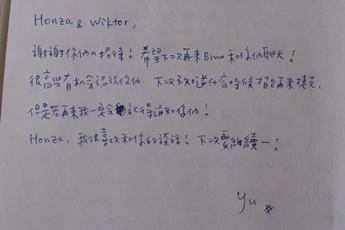 Honza & Wiktor,
謝謝你們的招待！希望下次再來Brno和你們聊天！
很高興有機會認識你們。下次不知道什么時候才能再來捷克，
但是若再來我一定會記得通知你們！
Honza, 我很喜歡和你的談話！下次要繼續──！
Yu